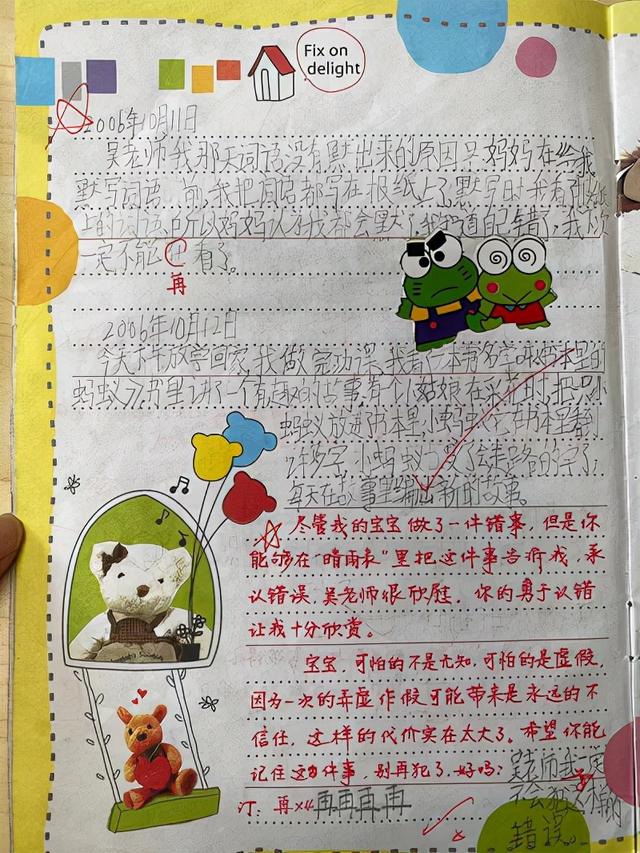 Fix on
delight
2006年10月11日
吴老师我那天词语没有默出来的原因只妈妈在给我
默写词语前,我把词语都写在报纸上了默写时我看了报纸
上的词语所以妈妈认为我都会默了我知道自己错了,我以后
一定不能 看了。
再
2006年10月12日
今天下午放学回家,我做完功课,我看一本书名字
蚂蚁》,书里讲了一个有趣的故事,有个小姑娘在采花时,把只小
蚂蚁放进书本里,小蚂蚁在书本里看
许多字,小蚂蚁 变了会走路的字了,
每天在故事里编出新的故事。
尽管我的宝宝做了一件错事,但是你
能够在“晴雨表”里把这件事告诉我,承
认错误,吴老师很欣慰,你的勇于认错
让我十分欣赏。
宝宝,可怕的不是无知,可怕的是虚假,
因为一次的弄虚作假可能带来是永远的不
信任,这样的代价实在太大了。希望你能
记住这件事,别再犯了,好吗?
吴老师我一定
不会犯
错误。
订:再×4 再再再再